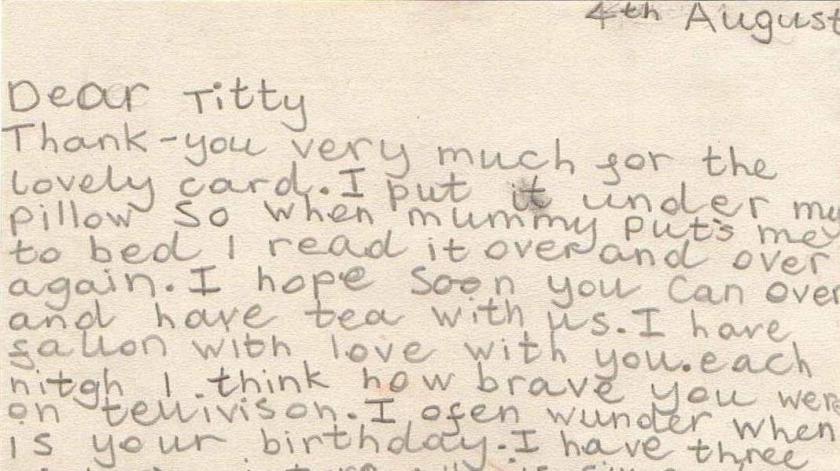 4th August
Dear Titty
Thank-you very much for the
lovely card. I put it under my
pillow so when mummy put's me
to bed I read it over and over
again. I hope soon you can over
and have tea with us. I have
fallon with love with you. each
nitgh I think how brave you were
on tellivison. I ofen wunder when
is your birthday. I have three